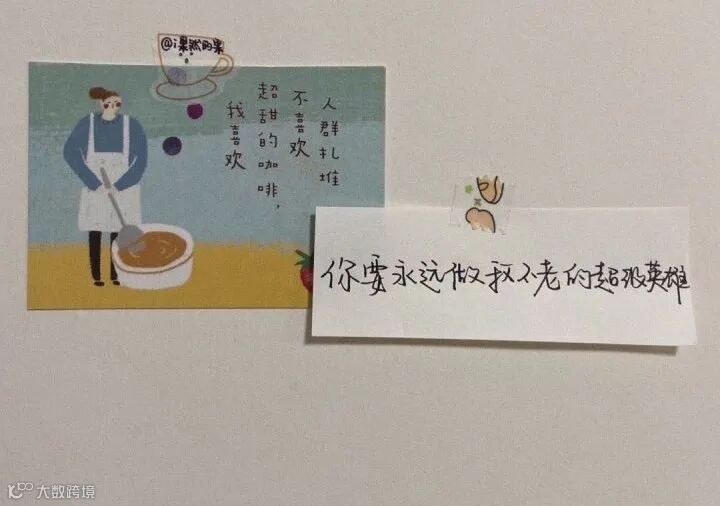 @i果然的果
人群扎堆
不喜欢
超甜的咖啡，
我喜欢
你要永远做我不老的超级英雄
大数跨境